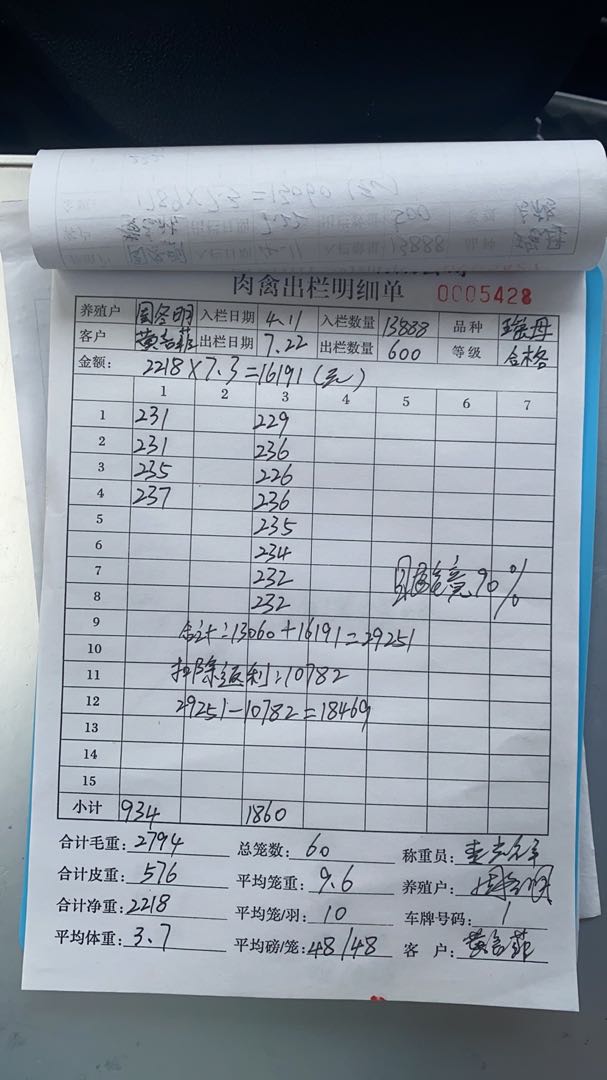 肉禽出栏明细单 0005428
养殖户 入栏日期 4.11 入栏数量 13888 品种 瑞丹
客户 出栏日期 7.22 出栏数量 600 等级 合格
金额: 2218×7.3=16191(元)
1 2 3 4 5 6 7
1 231 229
2 231 236
3 235 226
4 237 236
5 235
6 234
7 232 90%
8 232
9 合计:13060+16191=29251
10
11 扣除返利:10782
12 29251-10782=18469
13
14
15
小计 934 1860
合计毛重:2794 总笼数:60 称重员:
合计皮重:576 平均笼重:9.6 养殖户:
合计净重:2218 平均笼/羽:10 车牌号码:1
平均体重:3.7 平均磅/笼:48/48 客 户: